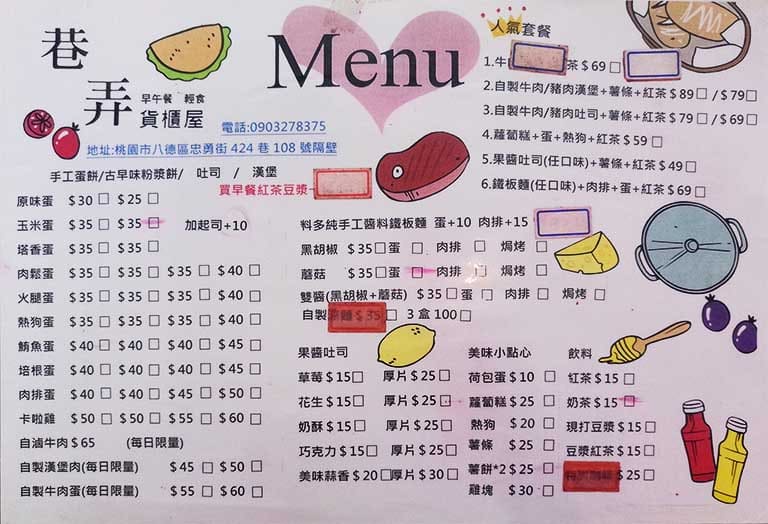 巷弄
早午餐 輕食
貨櫃屋
電話:0903278375
地址:桃園市八德區忠勇街 424 巷 108 號隔壁
Menu
手工蛋餅/古早味粉漿餅/ 吐司 / 漢堡
買早餐紅茶豆漿
原味蛋 $30 □ $25 □
玉米蛋 $35 □ $35 □ 加起司+10
塔香蛋 $35 □ $35 □
肉鬆蛋 $35 □ $35 □ $35 □ $40 □
火腿蛋 $35 □ $35 □ $35 □ $40 □
熱狗蛋 $35 □ $35 □ $35 □ $40 □
鮪魚蛋 $40 □ $40 □ $40 □ $45 □
培根蛋 $40 □ $40 □ $40 □ $45 □
肉排蛋 $40 □ $40 □ $45 □ $50 □
卡啦雞 $50 □ $50 □ $55 □ $60 □
自滷牛肉 $65 (每日限量)
自製漢堡肉(每日限量) $45 □ $50 □
自製牛肉蛋(每日限量) $55 □ $60 □
人氣套餐
1.牛 茶 $69 □
2.自製牛肉/豬肉漢堡+薯條+紅茶 $89 □ / $79 □
3.自製牛肉/豬肉吐司+薯條+紅茶 $79 □ / $69 □
4.蘿蔔糕+蛋+熱狗+紅茶 $59 □
5.果醬吐司(任口味)+薯條+紅茶 $49 □
6.鐵板麵(任口味)+肉排+蛋+紅茶 $69 □
料多純手工醬料鐵板麵 蛋+10 肉排+15
黑胡椒 $35 □ 蛋 □ 肉排 □ 焗烤 □
蘑菇 $35 □ 蛋 □ 肉排 □ 焗烤 □
雙醬(黑胡椒+蘑菇) $35 □ 蛋 □ 肉排 □ 焗烤 □
自製涼麵 $35 □ 3 盒 100 □
果醬吐司
草莓 $15 □ 厚片 $25 □
花生 $15 □ 厚片 $25 □
奶酥 $15 □ 厚片 $25 □
巧克力 $15 □ 厚片 $25 □
美味蒜香 $20 □ 厚片 $30 □
美味小點心
荷包蛋 $10 □
蘿蔔糕 $25 □
熱狗 $20 □
薯條 $25 □
薯餅*2 $25 □
雞塊 $30 □
飲料
紅茶 $15 □
奶茶 $15 □
現打豆漿 $15 □
豆漿紅茶 $15 □
$25 □